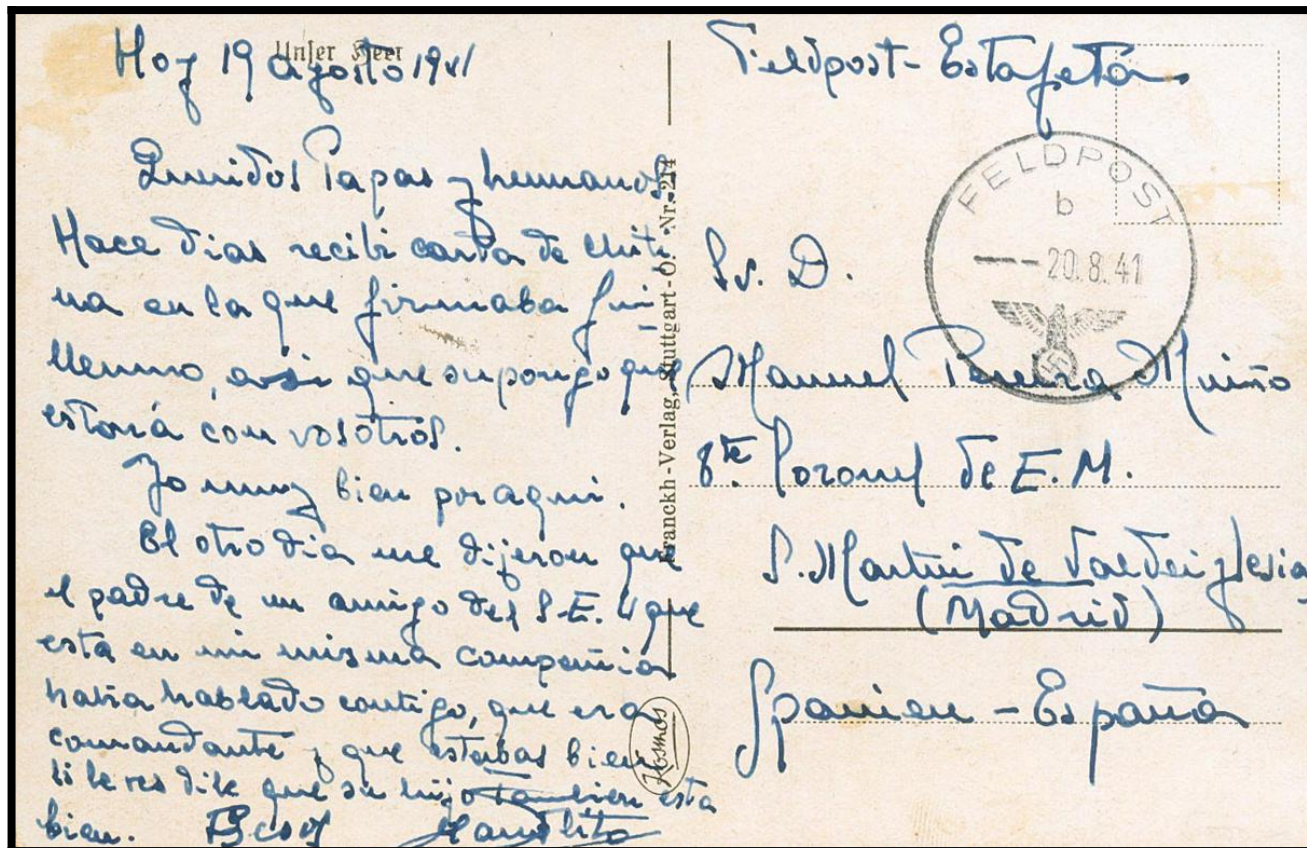 Unser Heer
Hoy 19 agosto 1941
Queridos Papas y hermanos
Hace dias recibi carta de Chiti-
na en la que firmaba Gui-
llermo, asi que supongo que
estará con vosotros.
Yo muy bien por aqui.
El otro dia me dijeron que
el padre de un amigo del S.E.U que
esta en mi misma compañia
habia hablado contigo, que era
comandante y que estabas bien
si le ves dile que su hijo tambien esta
bien. Besos Manolito
Franckh-Verlag, Stuttgart-O. Nr. 214
Kosmos
Feldpost - Estafeta
FELDPOST
b
20.8.41
Sr. D.
Manuel Pereira Muiño
Tte. Coronel de E.M.
S. Martin de Valdeiglesias
(Madrid)
Spanien - España